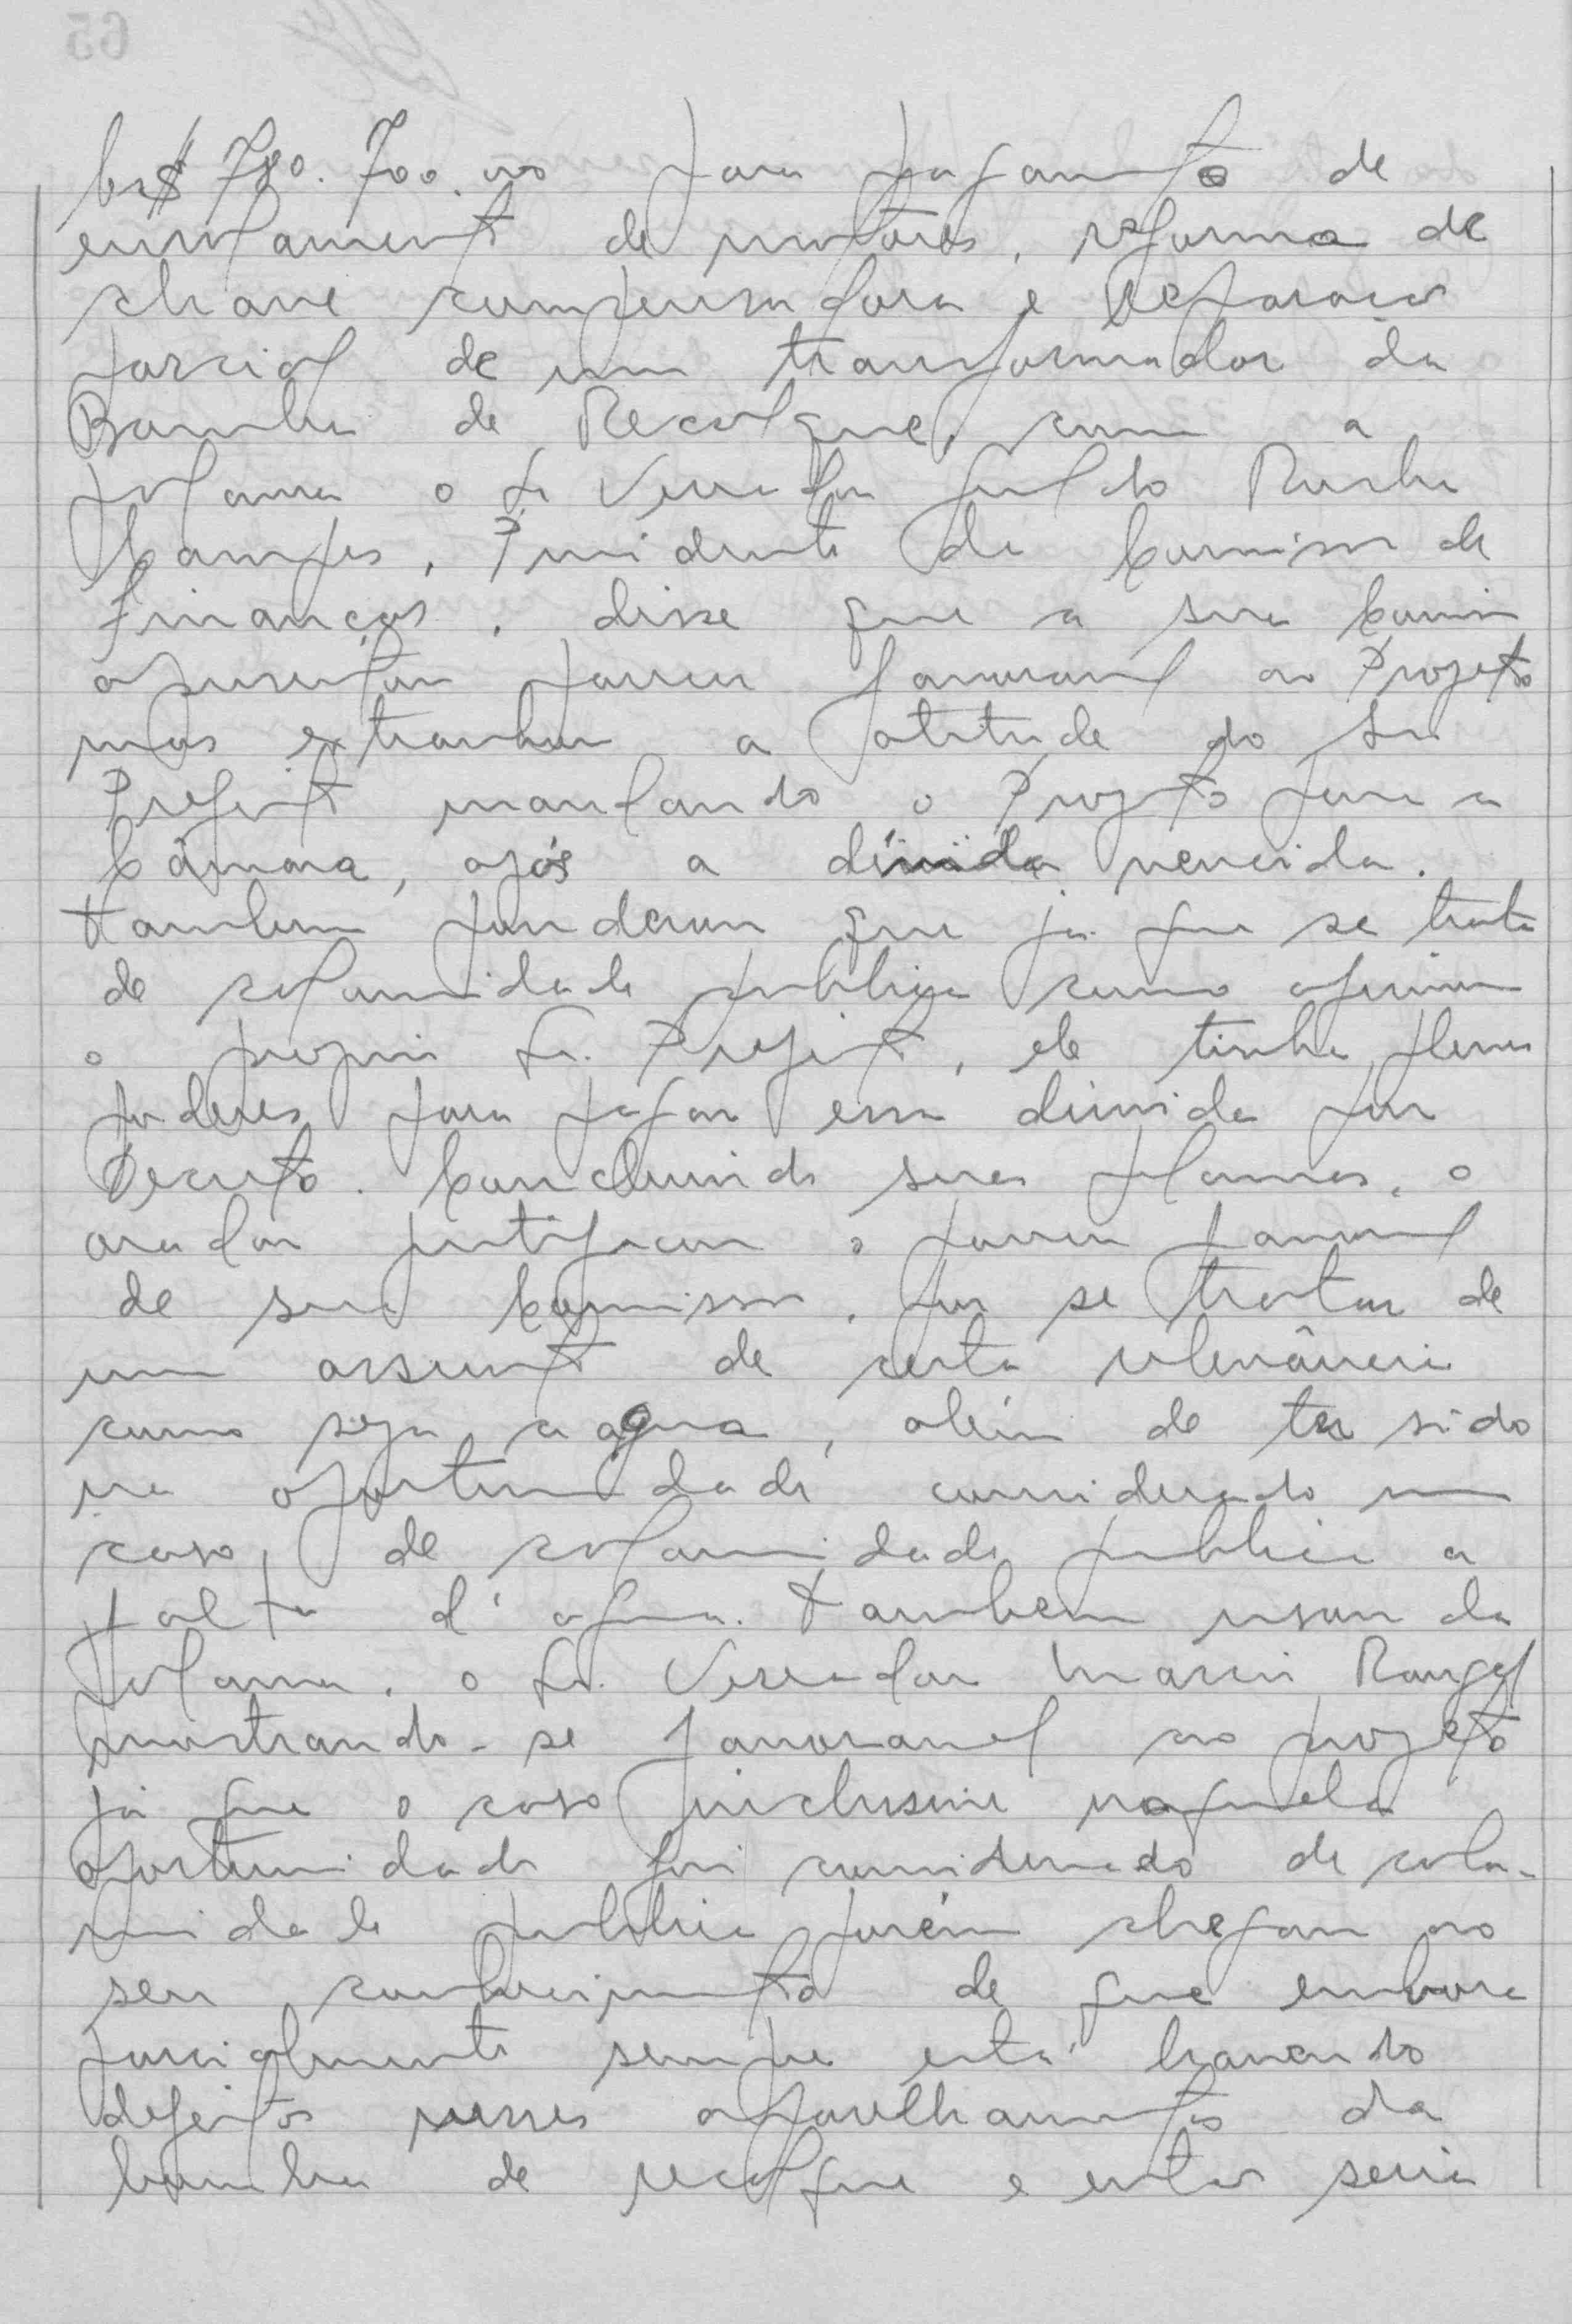 Cr$ 780.700.00 para pagamento de
enrolamento de motores, reforma de
chave compensadora e reparação
parcial de um transformador da
Bomba de Recalque, com a
palavra o Sr Vereador Geraldo Rocha
Campos, Presidente da Comissão de
Finanças, disse que a sua Comissão
apresentou parecer favoravel ao Projeto
mas extranhou a atitude do Sr
Prefeito mandando o Projeto para a
Câmara, após a dívida vencida.
Tambem ponderou que já que se trata
de calamidade publica como afirmou
o proprio Sr. Prefeito, ele tinha plenos
poderes para pagar essa divida por
Decreto. Concluindo suas palavras, o
orador justificou o parecer favoravel
de sua Comissão, por se tratar de
um assunto de certa relevância
como seja a agua, além de ter sido
na oportunidade considerado um
caso de calamidade publica a
falta d'agua. Tambem usou da
palavra, o Sr. Vereador Marcio Rangel
mostrando-se favoravel ao projeto
já que o caso inclusive naquela
oportunidade foi considerado de cala-
midade publica porém chegou ao
seu conhecimento de que embora
parcialmente sempre está havendo
defeitos nesses aparelhamentos da
bomba de recalque e então seria